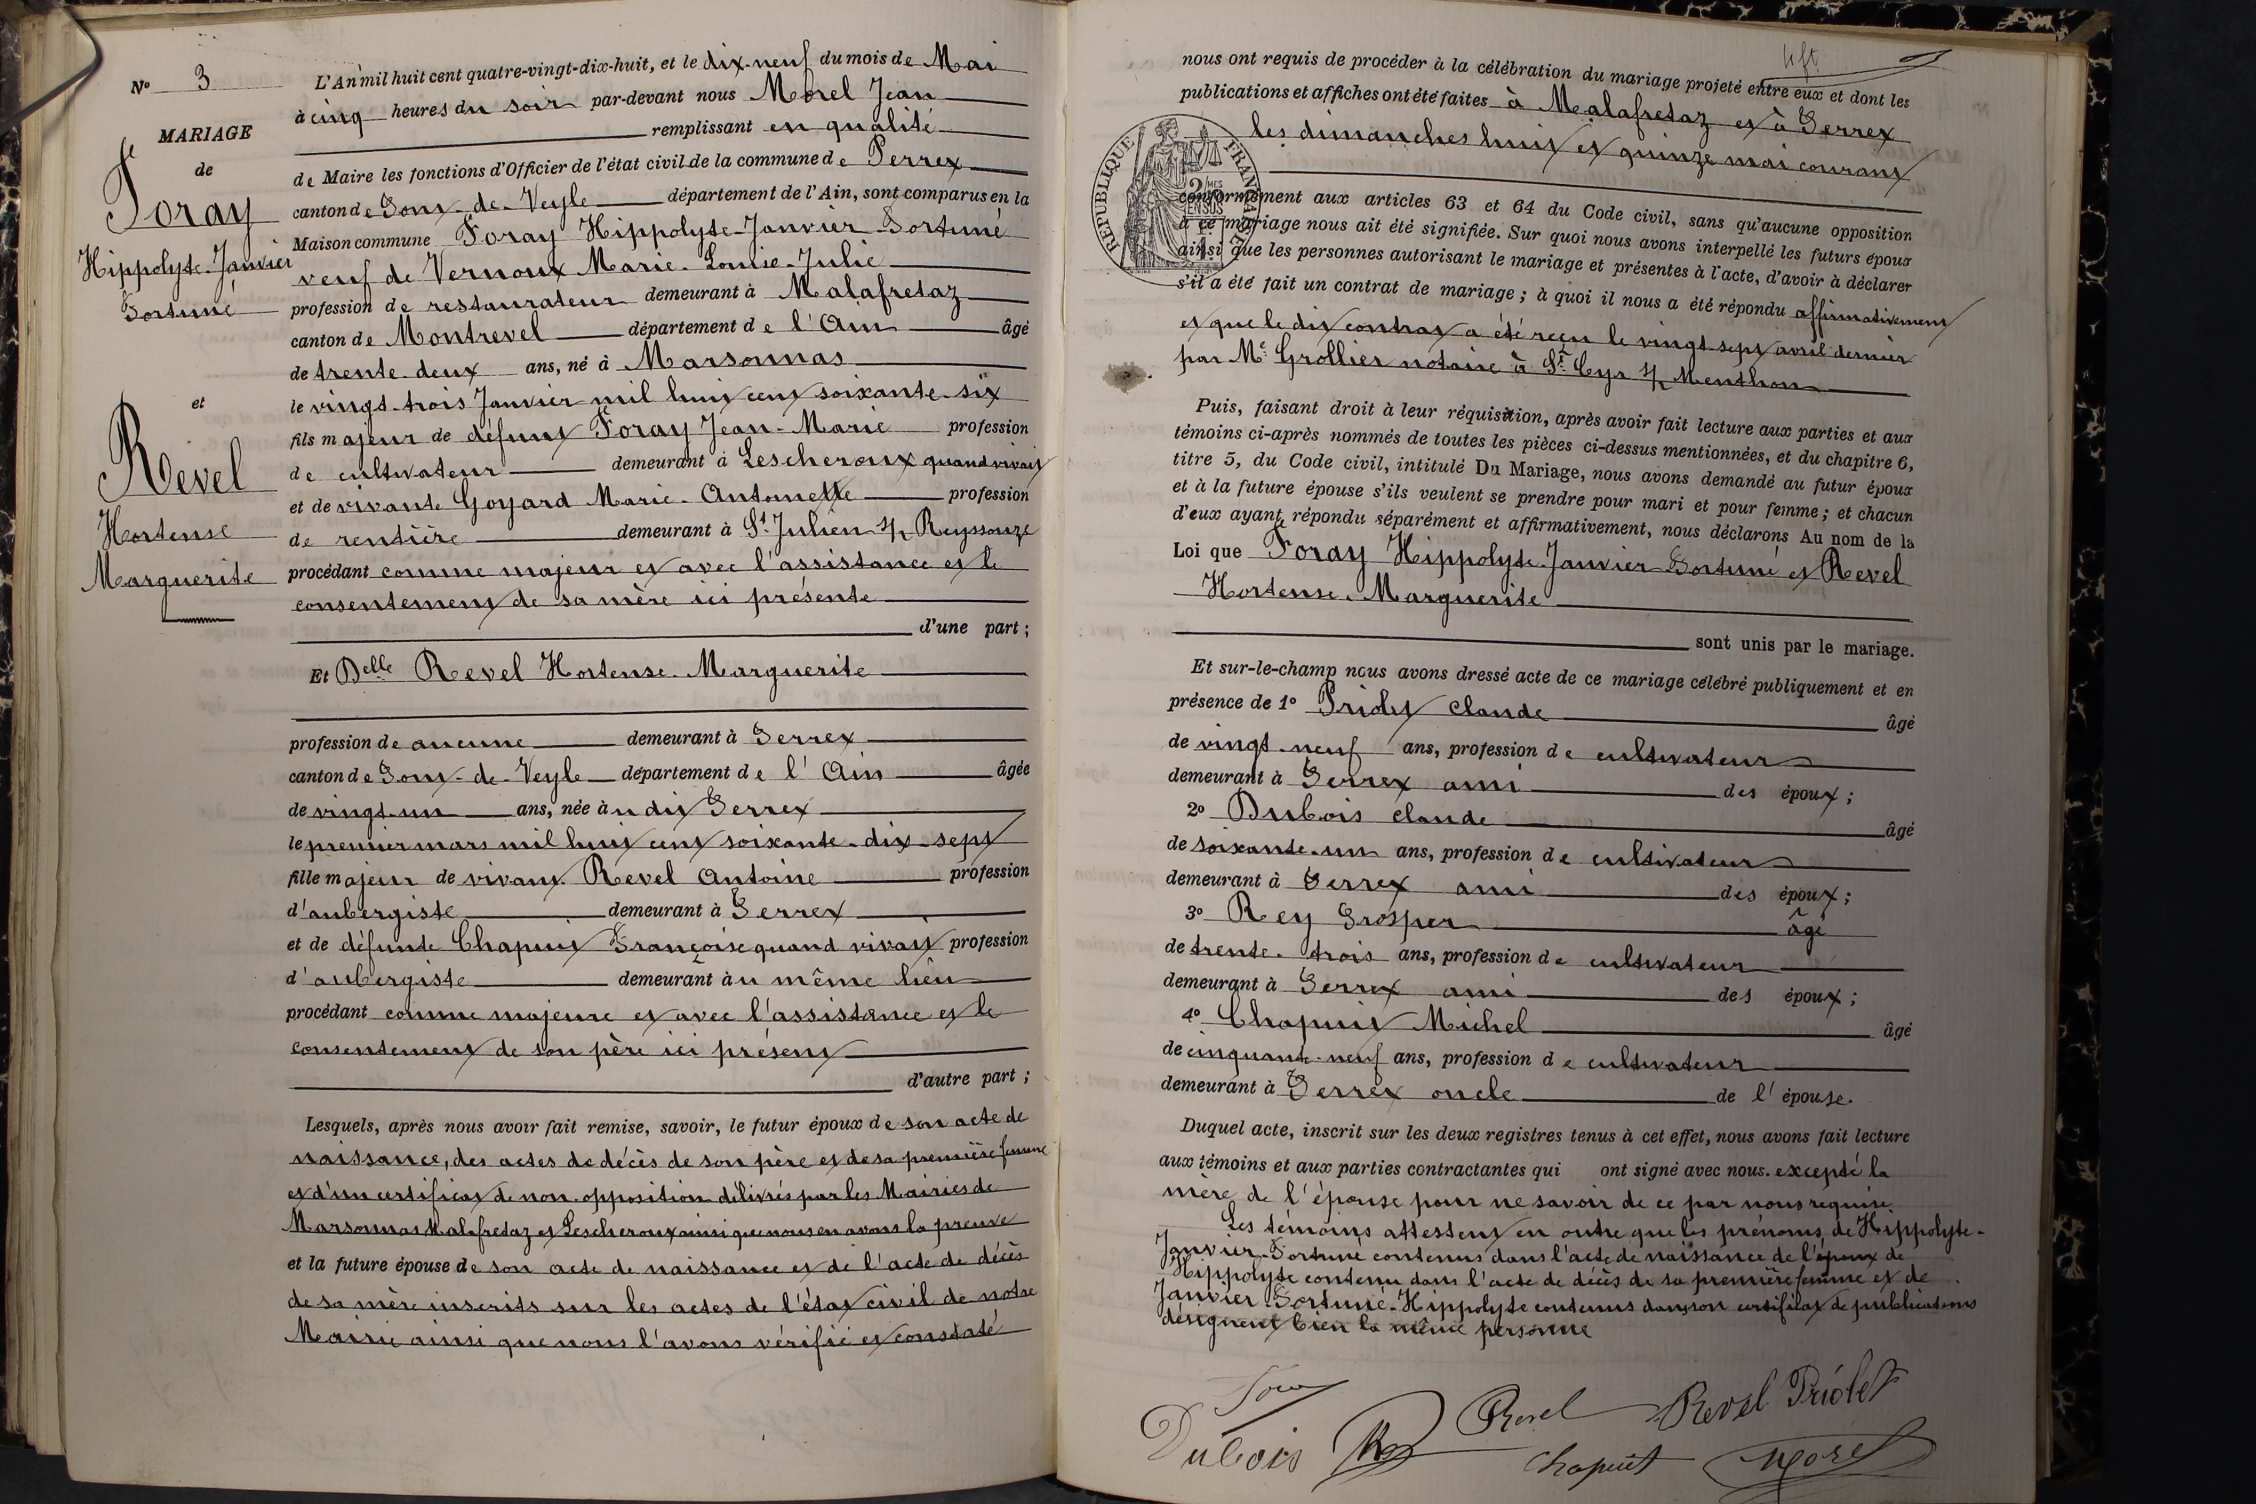 Nº 3
MARIAGE
de
Foray
Hippolyte-Janvier
Fortuné
et
Revel
Hortense
Marguerite
L'An mil huit cent quatre-vingt-dix-huit, et le dix-neuf du mois de Mai
à cinq heures du soir par-devant nous Morel Jean
remplissant en qualité
de Maire les fonctions d'Officier de l'état civil de la commune de Perrex
canton de Pont-de-Veyle département de l'Ain, sont comparus en la
Maison commune Foray Hippolyte-Janvier-Fortuné
veuf de Vernoux Marie-Louise-Julie
profession de restaurateur demeurant à Malafretaz
canton de Montrevel département de l'Ain âgé
de trente-deux ans, né à Marsonnas
le vingt-trois Janvier mil huit cent soixante-six
fils majeur de défunt Foray Jean-Marie profession
de cultivateur demeurant à Lescheroux quand vivait
et de vivante Goyard Marie-Antoinette profession
de rentière demeurant à St Julien s/r Reyssouze
procédant comme majeur et avec l'assistance et le
consentement de sa mère ici présente
d'une part ;
Et Delle Revel Hortense-Marguerite
profession de aucune demeurant à Perrex
canton de Pont-de-Veyle département de l'Ain âgée
de vingt-un ans, née àu dit Perrex
le premier mars mil huit cent soixante-dix-sept
fille majeur de vivant Revel Antoine profession
d'aubergiste demeurant à Perrex
et de défunte Chapuis Françoise quand vivait profession
d'aubergiste demeurant àu même lieu
procédant comme majeure et avec l'assistance et le
consentement de son père ici présent
d'autre part ;
Lesquels, après nous avoir fait remise, savoir, le futur époux de son acte de
naissance, des actes de décès de son père et de sa première femme
et d'un certificat de non-opposition délivrés par les Mairies de
Marsonnas Malafretaz et Lescheroux ainsi que nous en avons la preuve
et la future épouse de son acte de naissance et de l'acte de décès
de sa mère inscrits sur les actes de l'état civil de notre
Mairie ainsi que nous l'avons vérifié et constaté
nous ont requis de procéder à la célébration du mariage projeté entre eux et dont les
publications et affiches ont été faites à Malafretaz et à Perrex
les dimanches huit et quinze mai courant
RÉPUBLIQUE FRANÇAISE
conformément aux articles 63 et 64 du Code civil, sans qu'aucune opposition
à ce mariage nous ait été signifiée. Sur quoi nous avons interpellé les futurs époux
ainsi que les personnes autorisant le mariage et présentes à l'acte, d'avoir à déclarer
s'il a été fait un contrat de mariage ; à quoi il nous a été répondu affirmativement
et que le dit contrat a été reçu le vingt-sept avril dernier
par Me Grollier notaire à St Cyr s/r Menthon
Puis, faisant droit à leur réquisition, après avoir fait lecture aux parties et aux
témoins ci-après nommés de toutes les pièces ci-dessus mentionnées, et du chapitre 6,
titre 5, du Code civil, intitulé Du Mariage, nous avons demandé au futur époux
et à la future épouse s'ils veulent se prendre pour mari et pour femme ; et chacun
d'eux ayant répondu séparément et affirmativement, nous déclarons Au nom de la
Loi que Foray Hippolyte-Janvier-Fortuné et Revel
Hortense-Marguerite
sont unis par le mariage.
Et sur-le-champ nous avons dressé acte de ce mariage célébré publiquement et en
présence de 1º Priolet Claude âgé
de vingt-neuf ans, profession de cultivateur
demeurant à Perrex ami des époux ;
2º Dubois Claude âgé
de soixante-un ans, profession de cultivateur
demeurant à Perrex ami des époux ;
3º Rey Prosper âgé
de trente-trois ans, profession de cultivateur
demeurant à Perrex ami des époux ;
4º Chapuis Michel âgé
de cinquante-neuf ans, profession de cultivateur
demeurant à Perrex oncle de l'épouse.
Duquel acte, inscrit sur les deux registres tenus à cet effet, nous avons fait lecture
aux témoins et aux parties contractantes qui ont signé avec nous. excepté la
mère de l'épouse pour ne savoir de ce par nous requise.
Les témoins attestent en outre que les prénoms de Hippolyte-
Janvier-Fortuné contenus dans l'acte de naissance de l'époux de
Hippolyte contenu dans l'acte de décès de sa première femme et de
Janvier-Fortuné-Hippolyte contenus dans son certificat de publications
désignent bien la même personne
Foray
Revel Revel Priolet
Dubois Rey Chapuis Morel